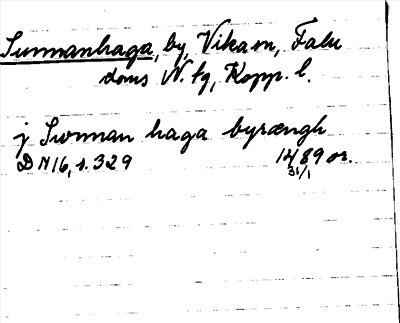 Sunnanhaga, by, Vika sn, Falu
doms N. tg, Kopp. l.
j Swnnan haga byrængh
DN 16, s. 329 1489 or.
31/1